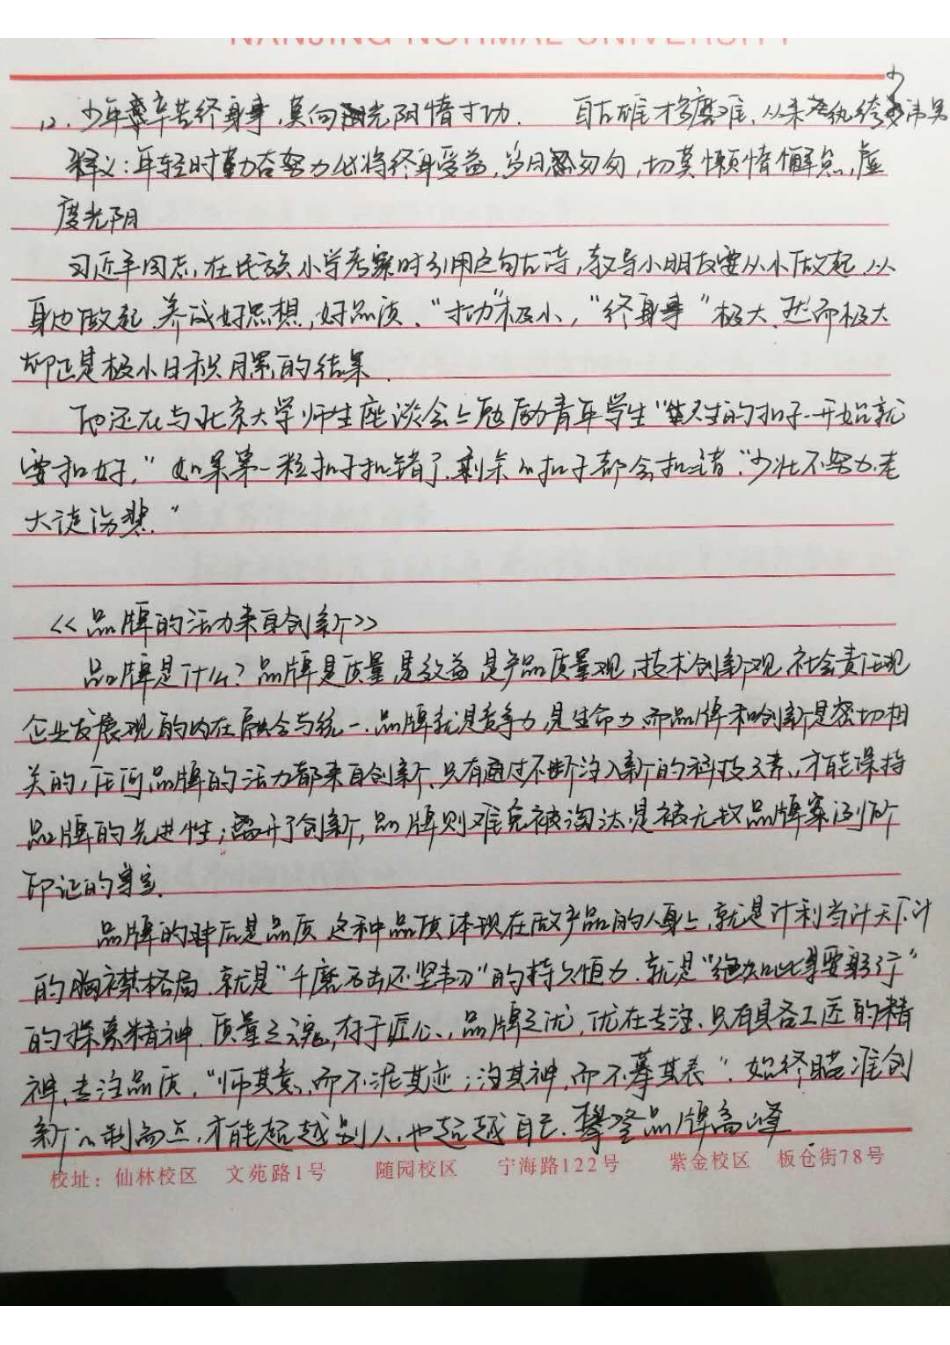 NANJING NORMAL UNIVERSITY
12. 少年辛苦终身事,莫向光阴惰寸功. 自古雄才多磨难,从来纨绔少伟男
释义:年轻时勤奋努力必将终身受益,岁月匆匆,切莫懒惰懈怠,虚
度光阴
习近平同志,在民族小学考察时引用这句古诗,教导小朋友要从小做起,从
身边做起.养成好思想,好品质."寸功"极小,"终身事"极大.然而极大
却正是极小日积月累的结果.
他还在与北京大学师生座谈会上勉励青年学生"人生的扣子一开始就
要扣好,"如果第一粒扣子扣错了.剩余的扣子都会扣错."少壮不努力.老
大徒伤悲."
<<品牌的活力来自创新>>
品牌是什么?品牌是质量,是效益,是产品质量观,技术创新观,社会责任观
企业发展观的内在融合与统一.品牌就是竞争力,是生命力.而品牌和创新是密切相
关的,任何品牌的活力都来自创新.只有通过不断注入新的科技元素,才能保持
品牌的先进性;离开了创新,品牌则难免被淘汰,是被无数品牌案例所
印证的
品牌的背后是品质.这种品质体现在做产品的人身上,就是计利当计天下计
的胸襟格局.就是"千磨万击还坚韧"的持久恒力.就是"绝知此事要躬行"
的探索精神.质量之魂,存于匠心.,品牌之优,优在专注.只有具备工匠的精
神,专注品质."师其意,而不泥其迹;得其神,而不摹其表".始终瞄准创
新的制高点,才能超越别人,也超越自己.攀登品牌高峰
校址:仙林校区 文苑路1号 随园校区 宁海路122号 紫金校区 板仓街78号